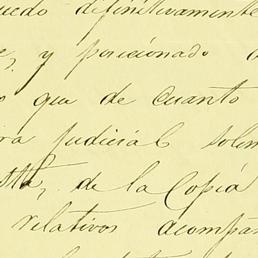 uedo definitivamente
e, y posicionado a
o que de cuanto
ra judicial solem
sta, de la Copia
relativos acompañ